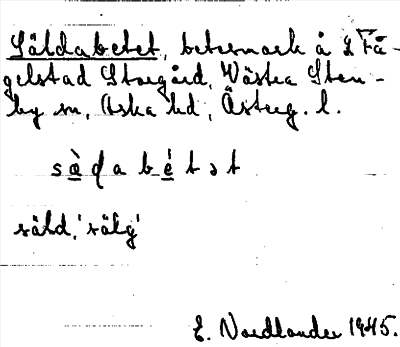 Säldabetet, betesmark å L Få-
gelstad Storgård, Västra Sten-
by sn, Aska hd, Österg. l.
sæ̀ḍabétət
säld, 'sälg'
E. Nordlander 1945.